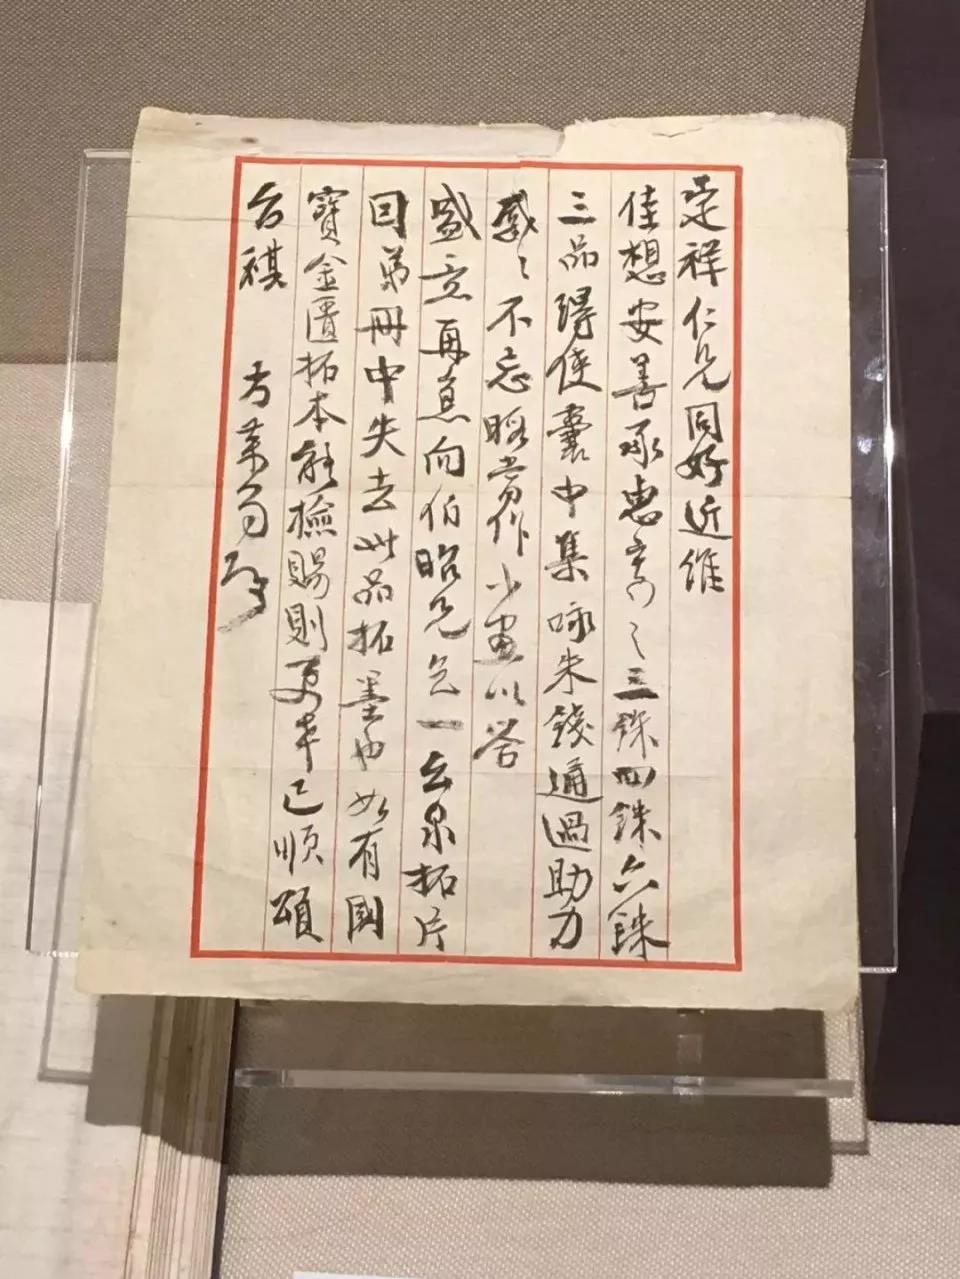 定祥仁兄同好近維
佳想安善承惠寄之三銖四銖六銖
三品得使囊中集咏朱錢通過助力
感〻不忘暇當作小畫以答
盛意再急向伯昭兄乞一云泉拓片
因弟冊中失去此品拓墨也如有國
寶金匱拓本能檢賜則更幸已順頌
台祺 方若